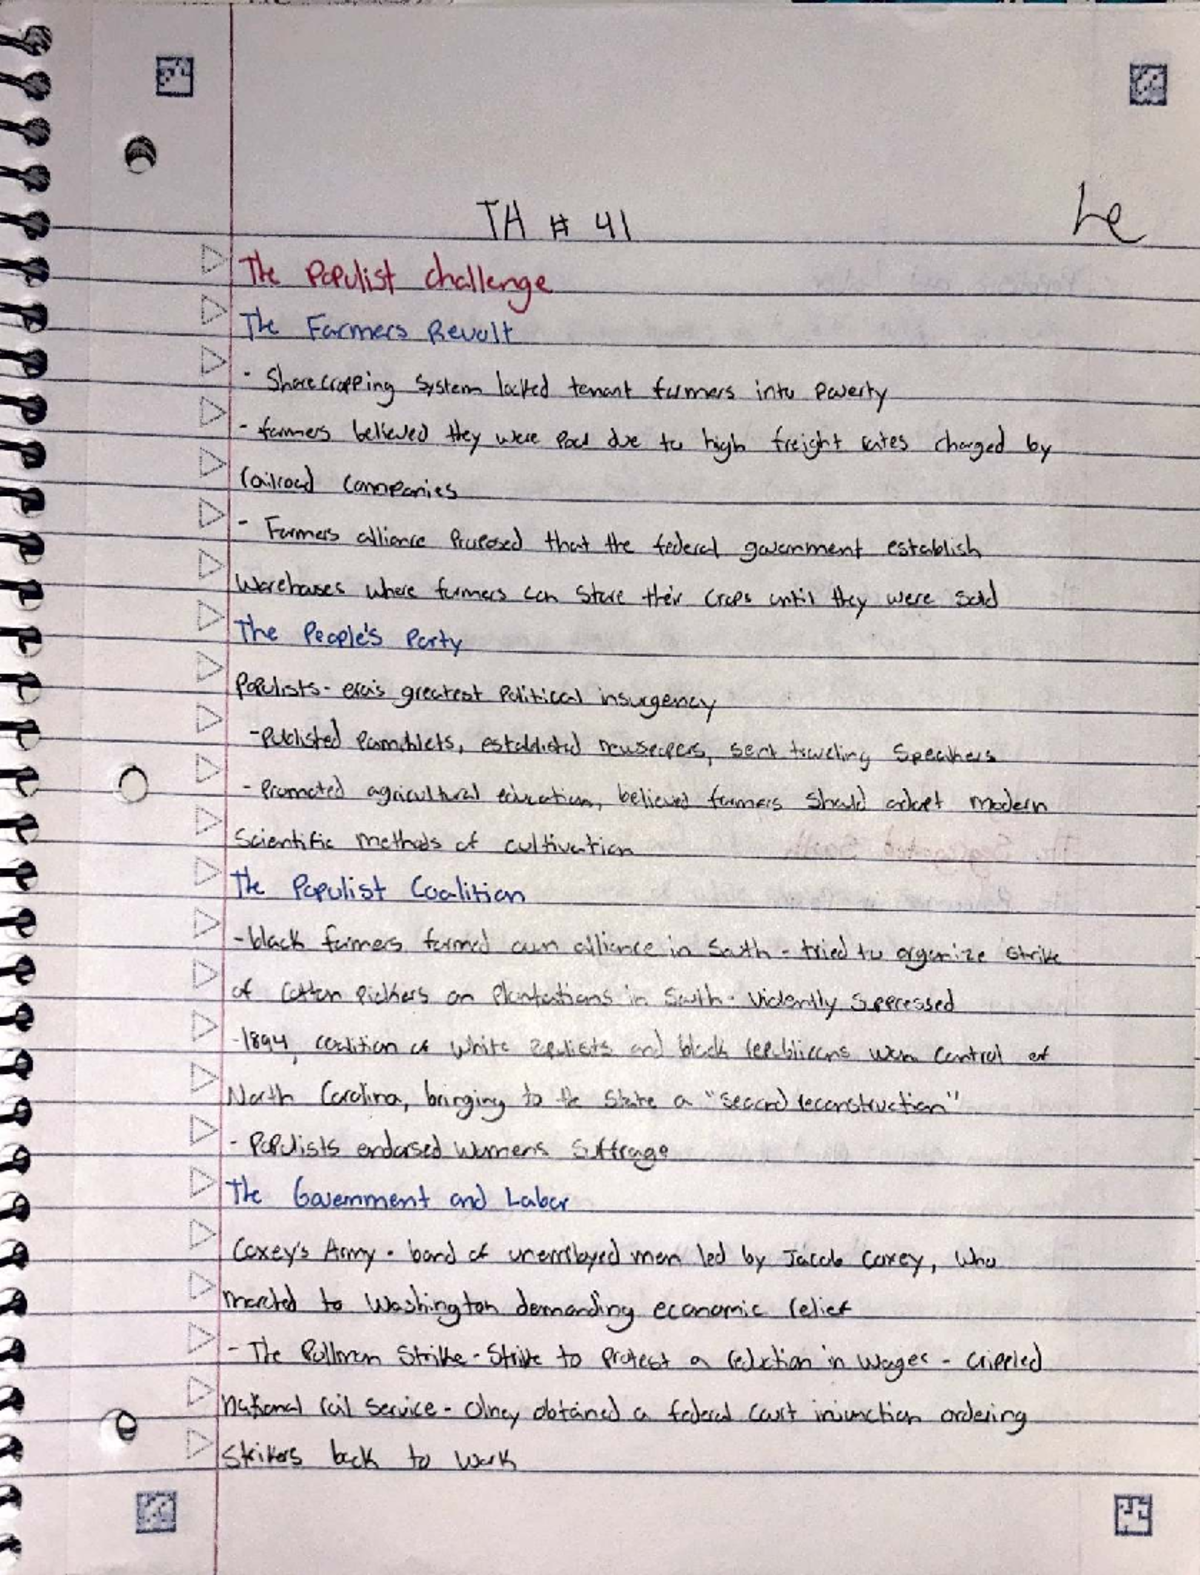 TA # 41
Le
The Populist challenge
The Farmers Revolt
- Sharecropping System locked tenant farmers into Poverty
- farmers believed they were Poor due to high freight rates charged by
railroad Companies
- Farmers alliance Proposed that the federal government establish
Warehouses where farmers can Store their Crops until they were Sold
The People's Party
Populists - era's greatest Political insurgency
- Published Pamphlets, established newspapers, sent traveling Speakers
- Promoted agricultural education, believed farmers Should adopt modern
Scientific methods of cultivation
The Populist Coalition
- black farmers formed own alliance in South - tried to organize Strike
of Cotton Pickers on Plantations in South - Violently Suppressed
- 1894, coalition of White Populists and black republicans won Control of
North Carolina, bringing to the State a "second reconstruction"
- Populists endorsed Womens Suffrage
The Government and Labor
Coxey's Army - band of unemployed men led by Jacob Coxey, Who
marched to Washington demanding economic relief
- The Pullman Strike - Strike to Protest a reduction in Wages - Crippled
national rail service - Olney obtained a federal Court injunction ordering
Strikers back to Work